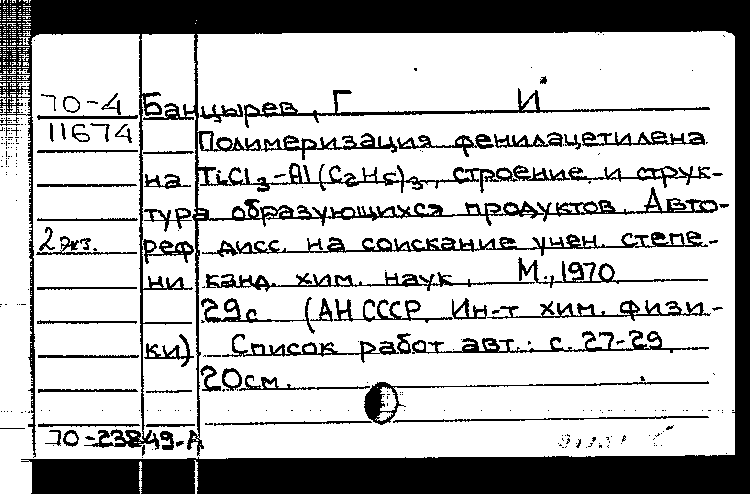 70-4 Банцырев, Г И
11674 Полимеризация фенилацетилена
на TiCl3-Al(C2H5)3, строение и струк-
тура образующихся продуктов. Авто-
2 экз. реф. дисс. на соискание учен. степе-
ни канд. хим. наук. М., 1970.
29с (АН СССР. Ин-т хим. физи-
ки) Список работ авт.: с. 27-29.
20см.
70-23849-А